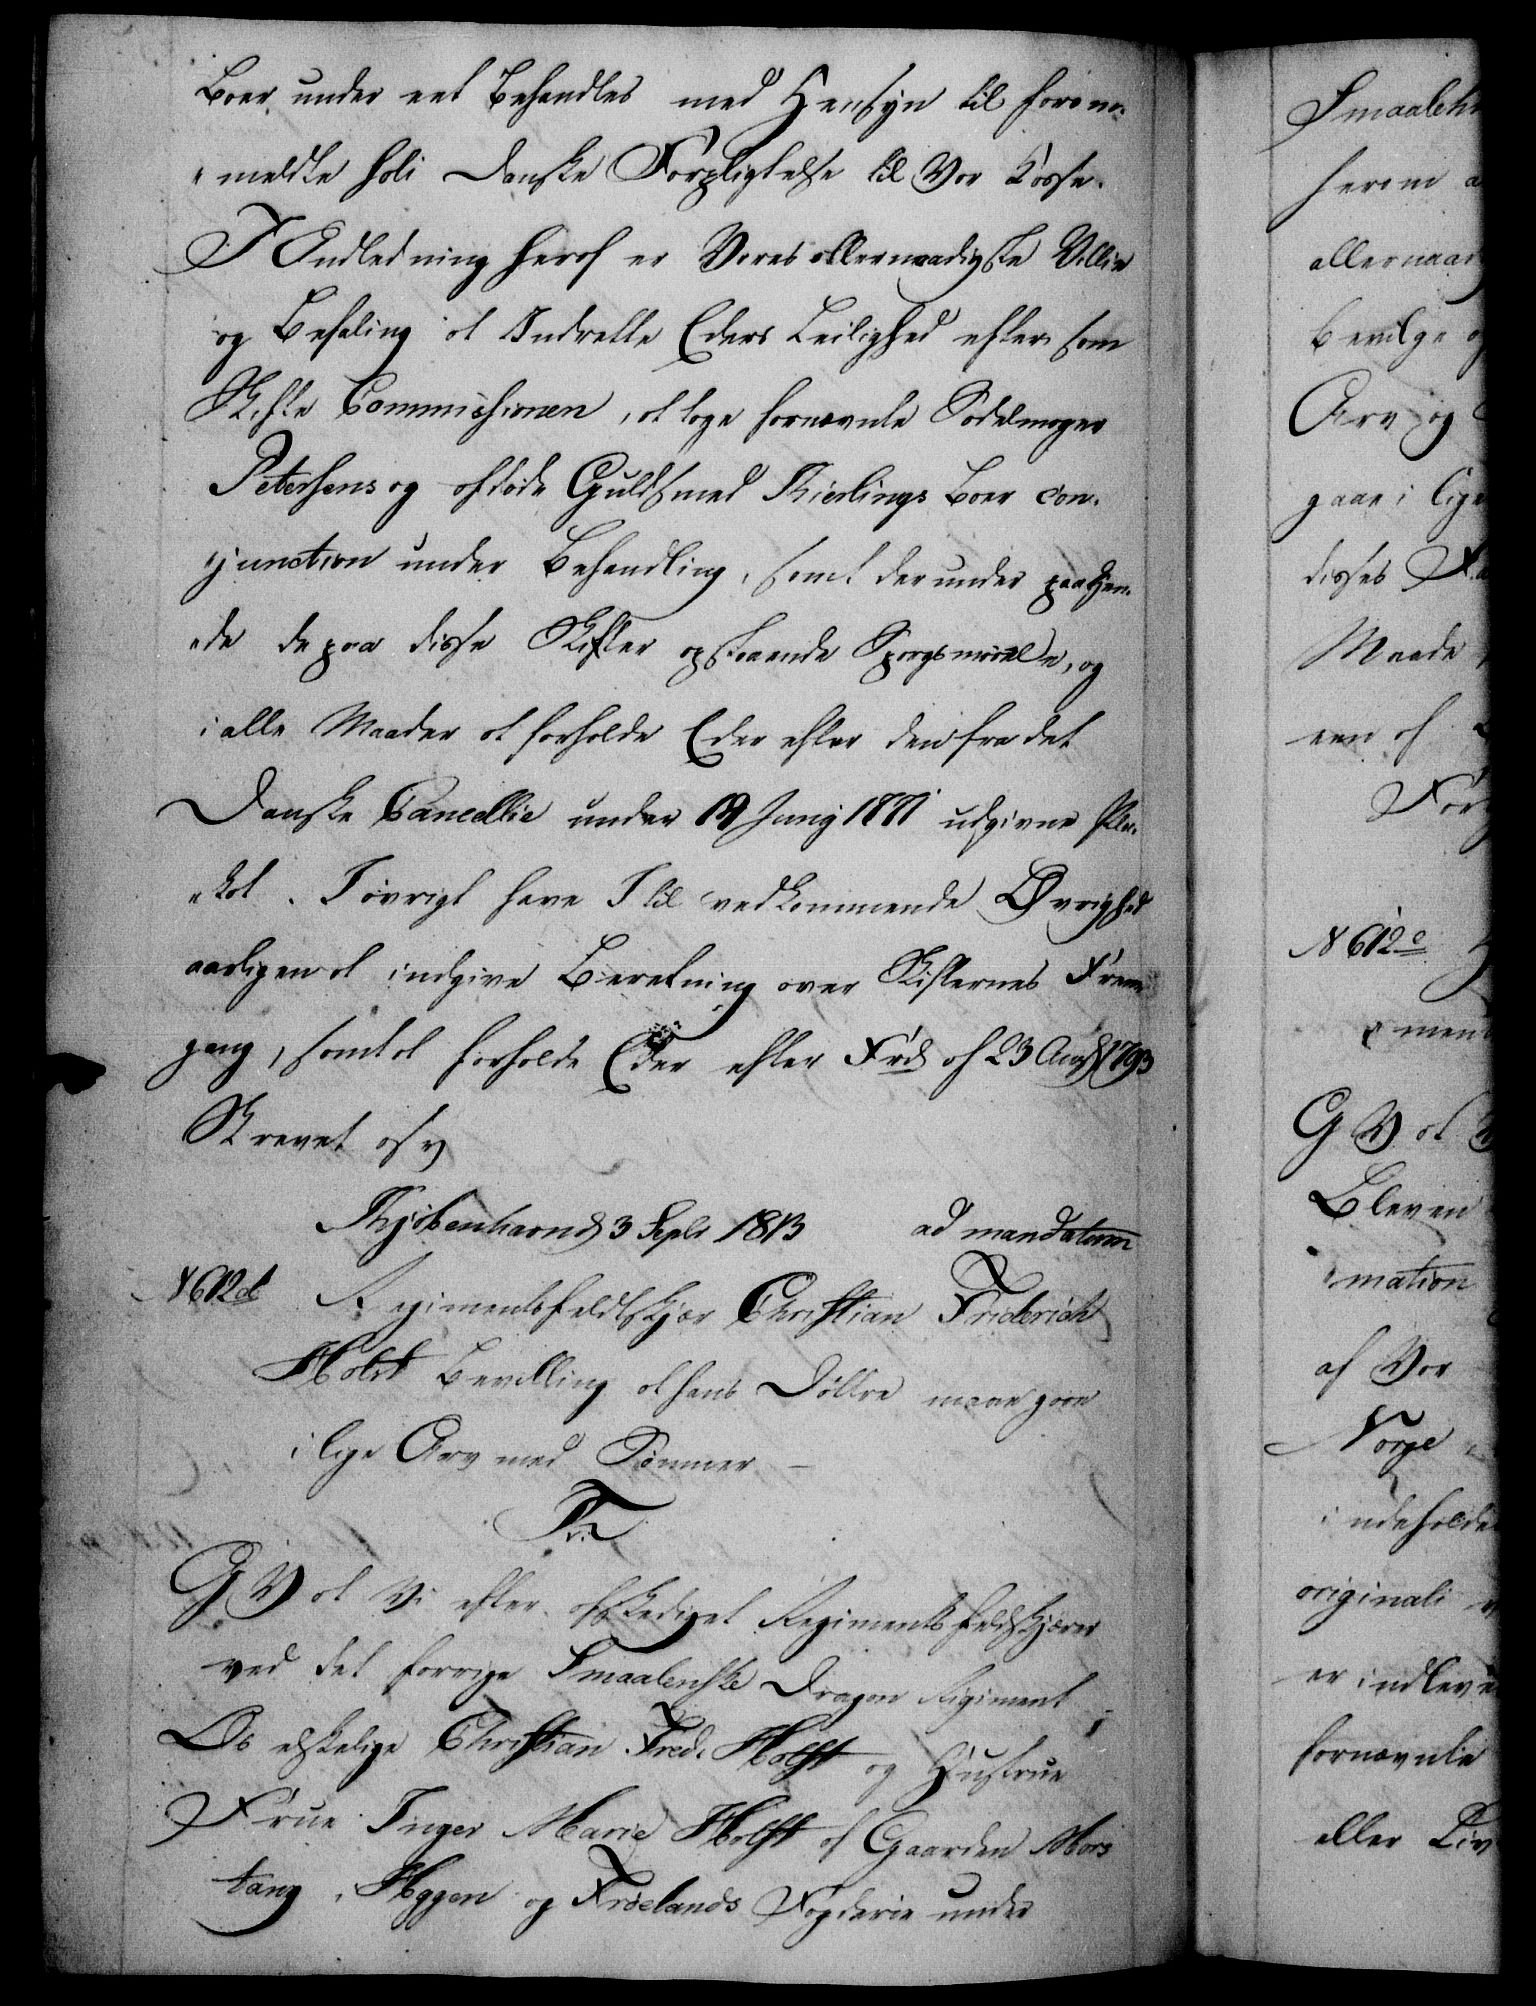 Boer under eet behandles med Hensyn til foran¬
„meldte soli danske Forpligtelse til Vor Casse.
I Andledning heraf er Vores allernaadigste Villie
og Befaling at I indrette Eders Leilighed eftersom
Skifte Commissionen, at tage fornævnte Sadelmager
Petersens og afdøde Guldsmed Kierlings Boer con¬
„junction under Behandling, samt derunder paakjen¬
„de de paa disse Skifter opstaaende Spørgsmaale, og
i alle Maader at forholde Eder efter den fra det
Danske Cancellie under 19 Junij 1811 udgivne Pla¬
„kat. I øvrigt have I til vedkommende Øvrighed
aarligen at indgive Beretning over Skifternes Frem¬
gang, samt at forholde Eder efter Frd. af 23 Aug 1793
Skrevet osv
Kjøbenhavn d 3 Septr 1813 ad mandatum
N 612 d Regimentsfeldtskjær Christian Friderich
Holst Bevilling at hans Døttre maae gaae
i lige Arv med Sønner –
Fr
G V at Vi efter afskediget Regimentsfeldtskjærer
ved det forrige Smaalenske Dragon Regiment
Os elskelige Christian Fred. Holst og Hustrue
Frue Inger Marie Holst af Gaarden Mors
tang, Hggen og Frølands Fogderie under
Smaaleh
herom a
allernaad
bevilge og
Arv og
gaae i lige
disses
Maade
een af
N 612 e
ment
G V at V
Bleven
„mation
af Vor
Norge
indeholde
originali
er indleve
fornævnte
eller Liv